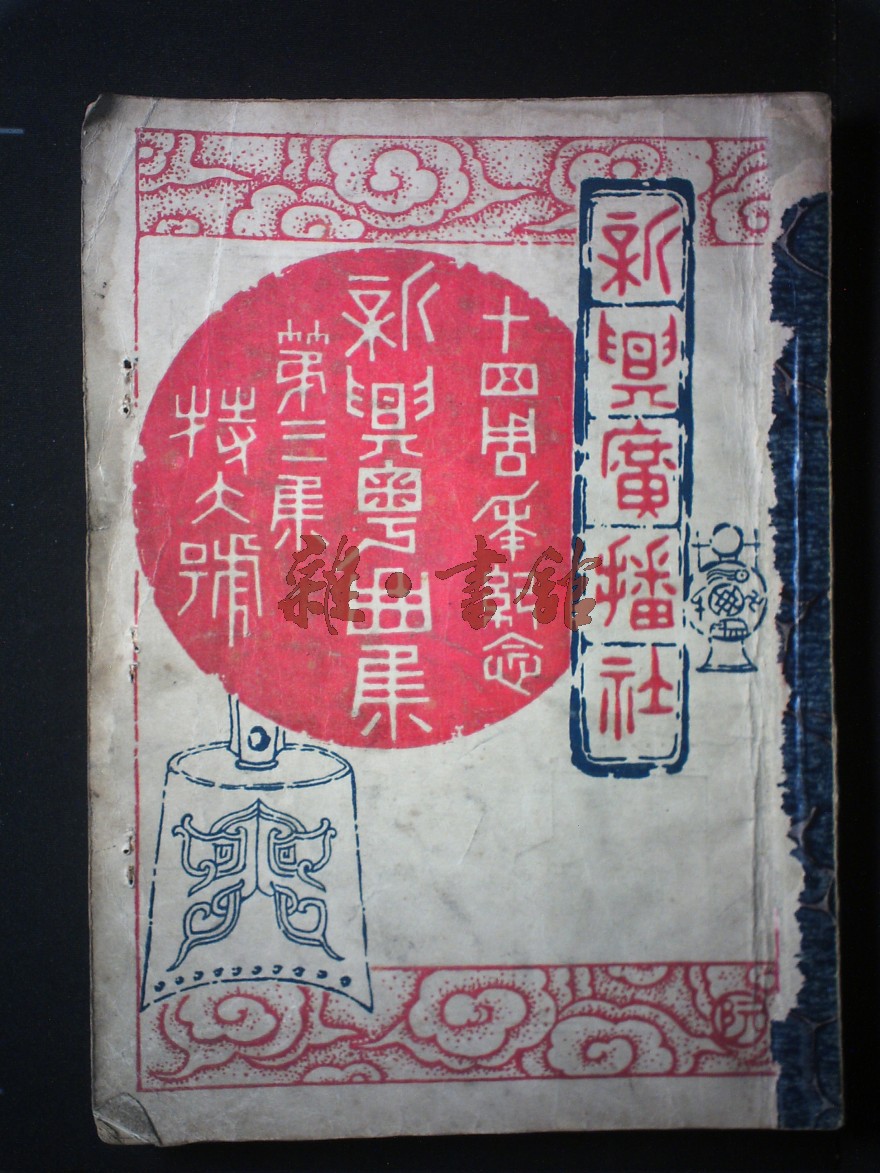 新興廣播社
十四周年紀念
新興粵曲集
第三集
特大號
雜·書館
阮